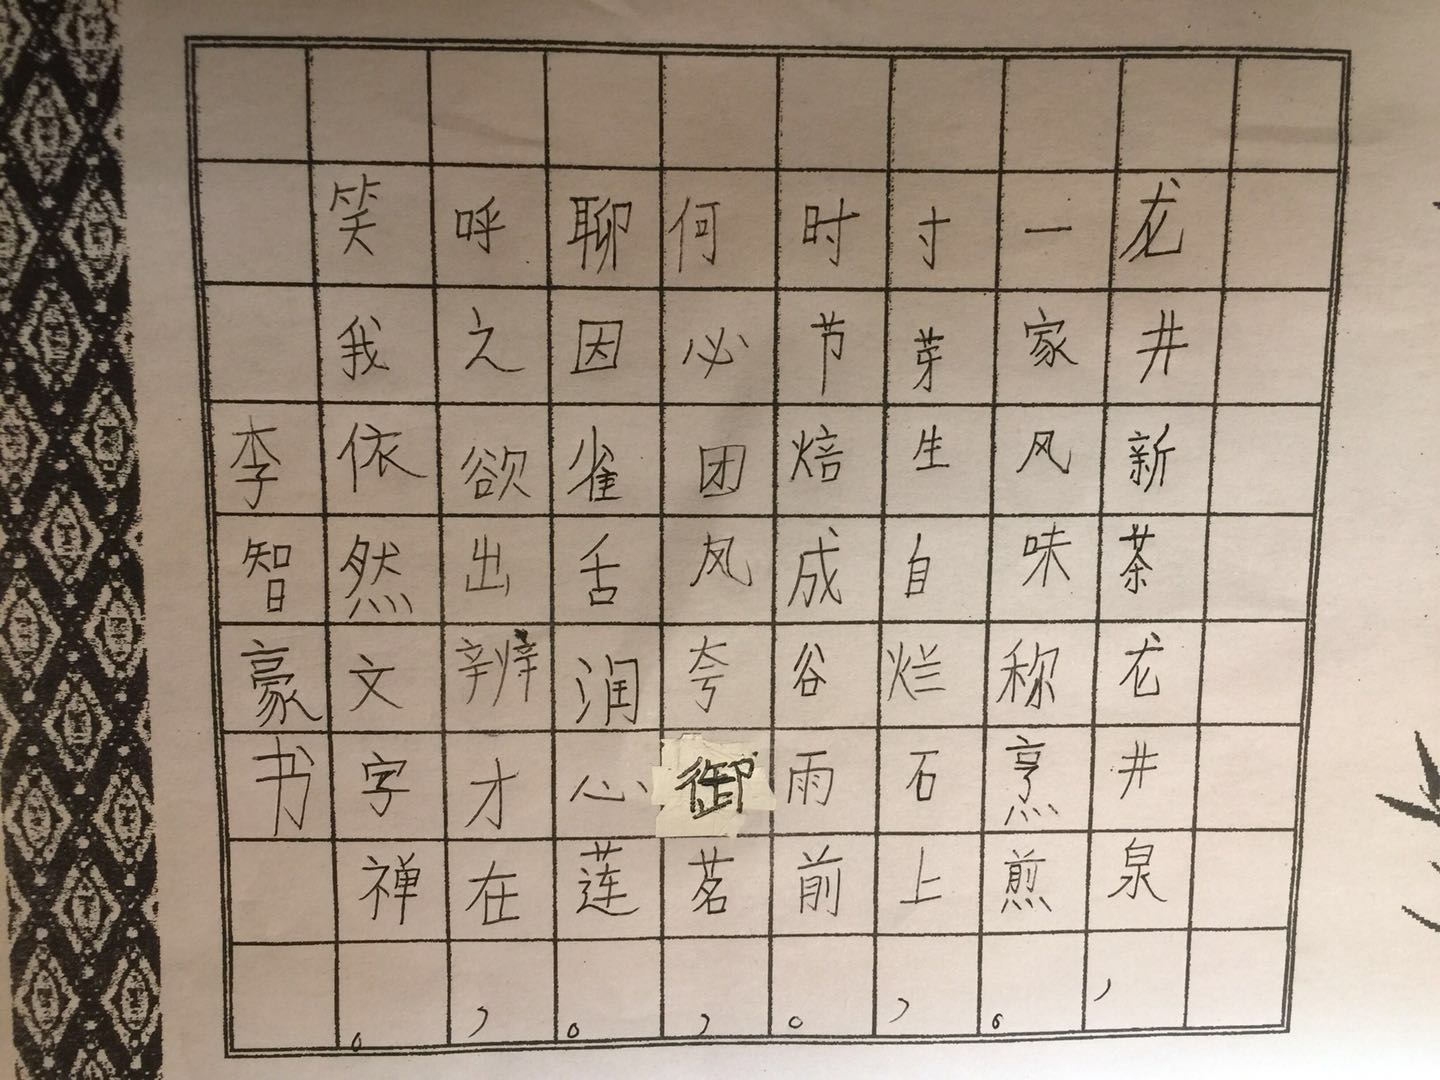 龙井新茶龙井泉，
一家风味称烹煎。
寸芽生自烂石上，
时节焙成谷雨前。
何必团凤夸御茗，
聊因雀舌润心莲。
呼之欲出辨才在，
笑我依然文字禅。
李智豪书